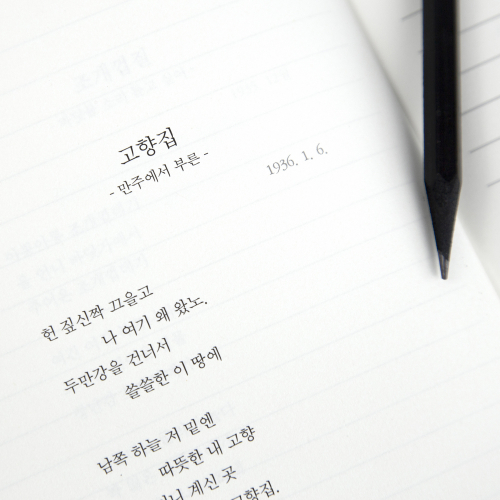 고향집
- 만주에서 부른 -
1936. 1. 6.
헌 짚신짝 끄을고
나 여기 왜 왔노.
두만강을 건너서
쓸쓸한 이 땅에
남쪽 하늘 저 밑엔
따뜻한 내 고향
계신 곳
고향집.